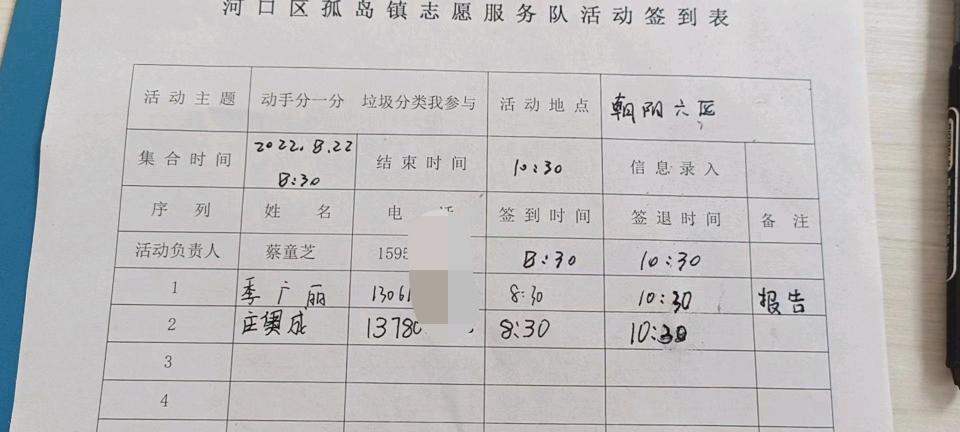 河口区孤岛镇志愿服务队活动签到表
活动主题 动手分一分 垃圾分类我参与 活动地点 朝阳六区
集合时间 2022.8.22 8:30 结束时间 10:30 信息录入
序列 姓名 电话 签到时间 签退时间 备注
活动负责人 蔡童芝 1595 8:30 10:30
1 季广丽 13061 8:30 10:30 报告
2 1378 8:30 10:30
3
4